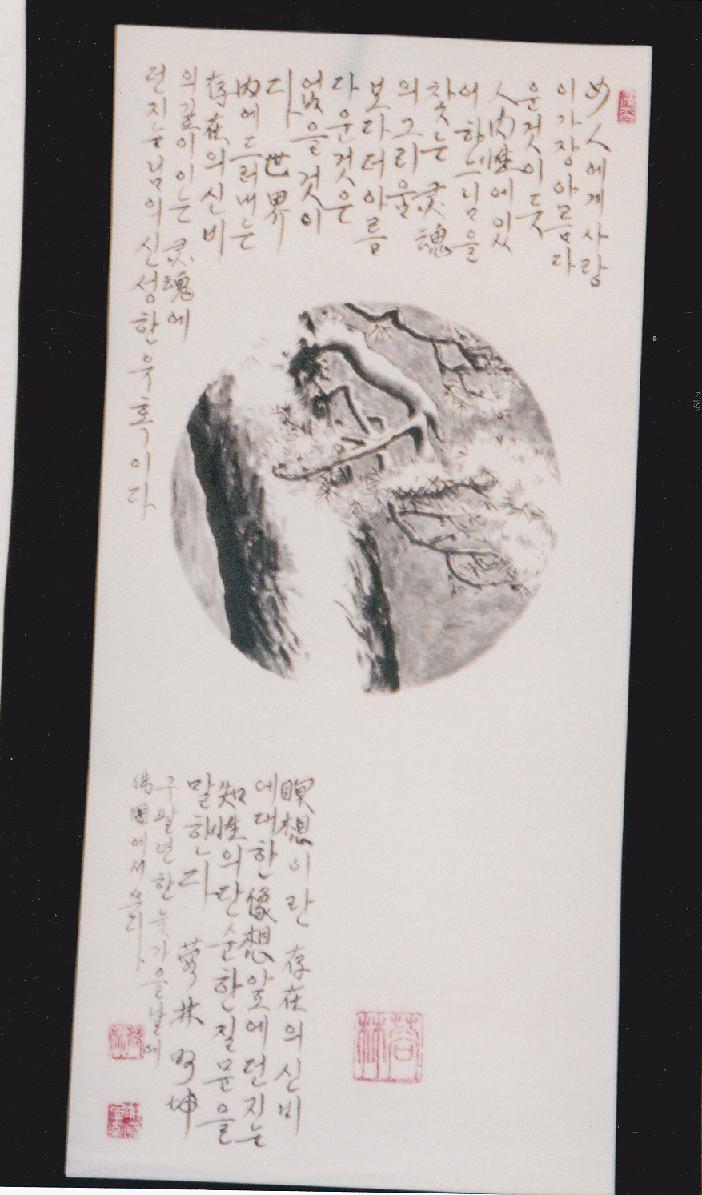 女人에게 사랑
이 가장 아름다
운 것이듯
人内性에 있
어 하느님을
찾는 灵魂
의 그리움
보다 더 아름
다운 것은
없을 것이
다 世界
内에 드러내는
存在의 신비
의 깊이 이는 灵魂에
던지는 님의 신성한 유혹이다
瞑想이란 存在의 신비
에 대한 像想 앞에 던지는
知性의 단순한 질문을
말한다 林 坤
구팔년 한 늦가을날에
佛国에서 쓰다